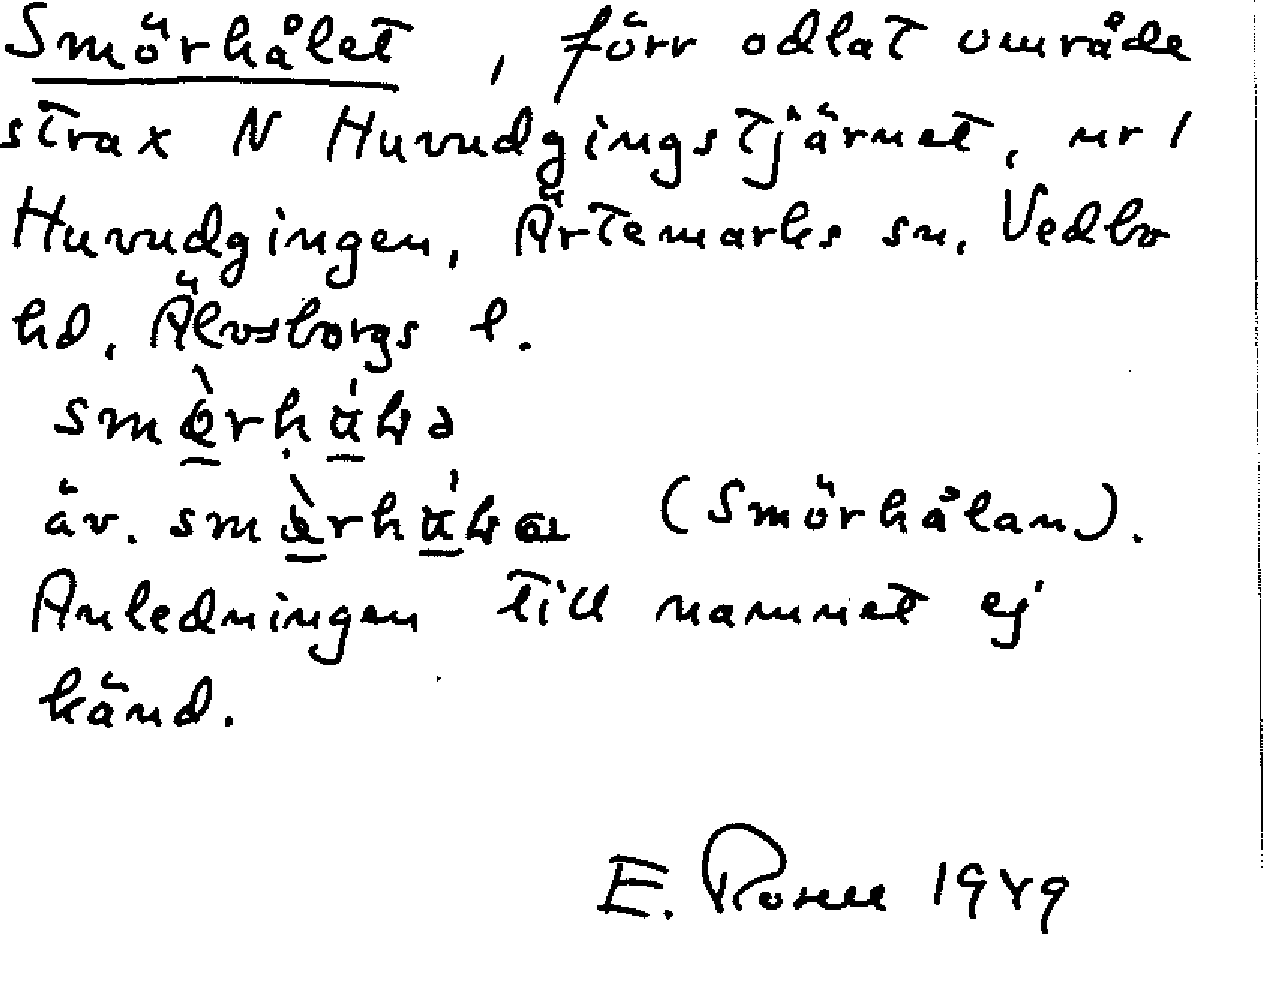 Smörhålet, förr odlat område
strax N Huvudgingstjärnet, nr 1
Huvudgingen, Ärtemarks sn, Vedbo
hd, Älvsborgs l.
äv. (Smörhålan).
Anledningen till namnet ej
känd.
E. Rosell 1949